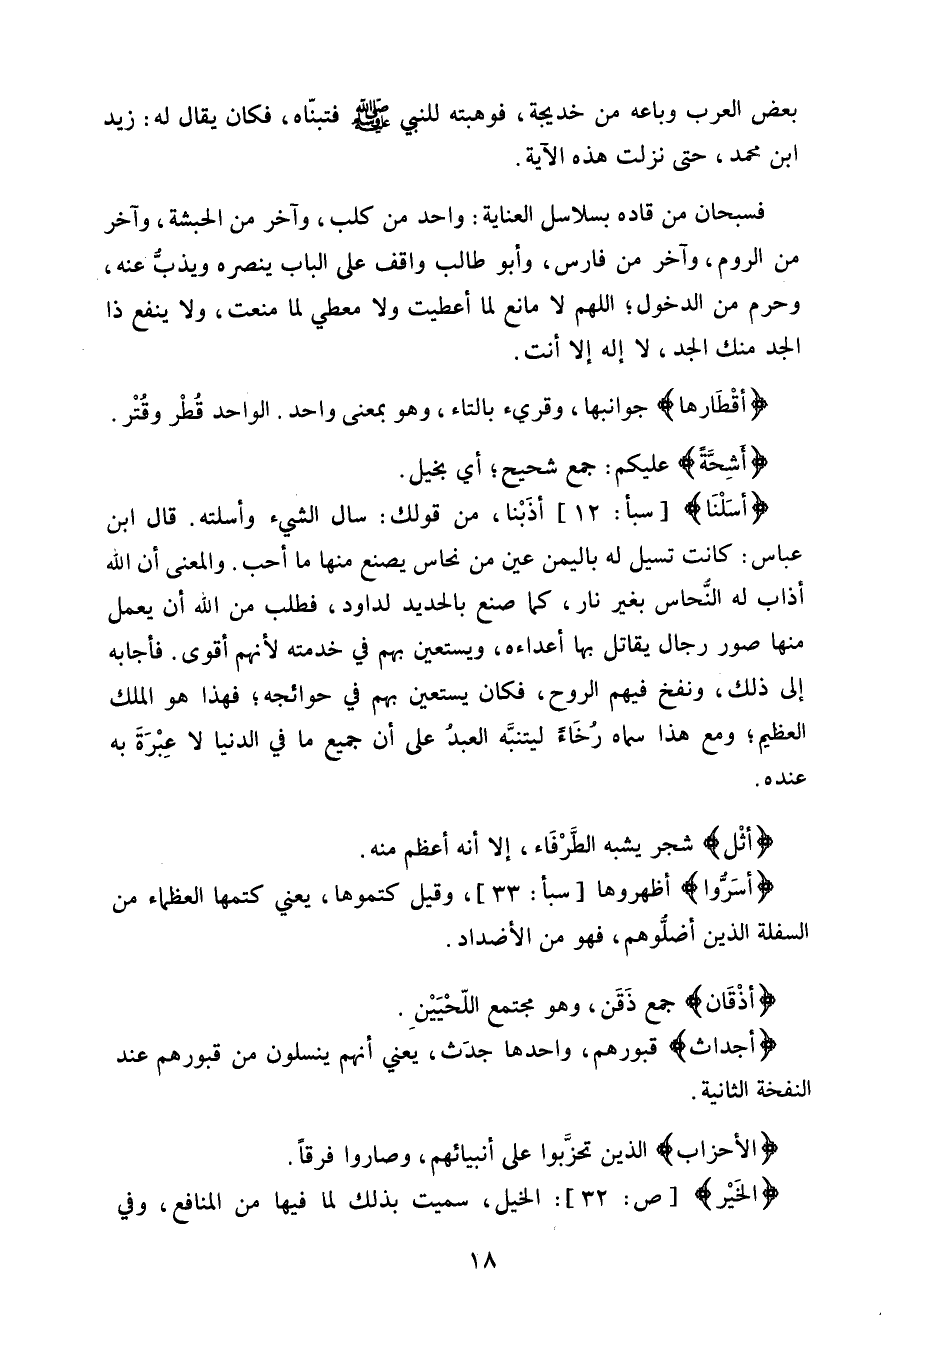 بعض العرب وباعه من خديجة، فوهبته للنبي ﷺ فتبنّاه، فكان يقال له: زيد
ابن محمد، حتى نزلت هذه الآية.
فسبحان من قاده بسلاسل العناية: واحد من كلب، وآخر من الحبشة، وآخر
من الروم، وآخر من فارس، وأبو طالب واقف على الباب ينصره ويذبُّ عنه،
وحرم من الدخول؛ اللهم لا مانع لما أعطيت ولا معطي لما منعت، ولا ينفع ذا
الجد منك الجد، لا إله إلا أنت.
﴿أقْطَارها﴾ جوانبها، وقريء بالتاء، وهو بمعنى واحد. الواحد قُطْر وقُتْر.
﴿أَشِحَّةً﴾ عليكم: جمع شحيح؛ أي بخيل.
﴿أسَلْنَا﴾ [سبأ: ١٢] أذَبْنا، من قولك: سال الشيء وأسلته. قال ابن
عباس: كانت تسيل له باليمن عين من نحاس يصنع منها ما أحب. والمعنى أن الله
أذاب له النُّحاس بغير نار، كما صنع بالحديد لداود، فطلب من الله أن يعمل
منها صور رجال يقاتل بها أعداءه، ويستعين بهم في خدمته لأنهم أقوى. فأجابه
إلى ذلك، ونفخ فيهم الروح، فكان يستعين بهم في حوائجه؛ فهذا هو الملك
العظيم؛ ومع هذا سماه رُخَاءً ليتنبَّه العبدُ على أن جميع ما في الدنيا لا عِبْرَةَ به
عنده.
﴿أثْل﴾ شجر يشبه الطَّرْفَاء، إلا أنه أعظم منه.
﴿أسَرُّوا﴾ أظهروها [سبأ: ٣٣]، وقيل كتموها، يعني كتمها العظماء من
السفلة الذين أضلُّوهم، فهو من الأضداد.
﴿أذْقَان﴾ جمع ذَقَن، وهو مجتمع اللّحْيَيْنِ.
﴿أجداث﴾ قبورهم، واحدها جدَث، يعني أنهم ينسلون من قبورهم عند
النفخة الثانية.
﴿الأحزاب﴾ الذين تحزَّبوا على أنبيائهم، وصاروا فرقاً.
﴿الخَيْر﴾ [ص: ٣٢]: الخيل، سميت بذلك لما فيها من المنافع، وفي
١٨